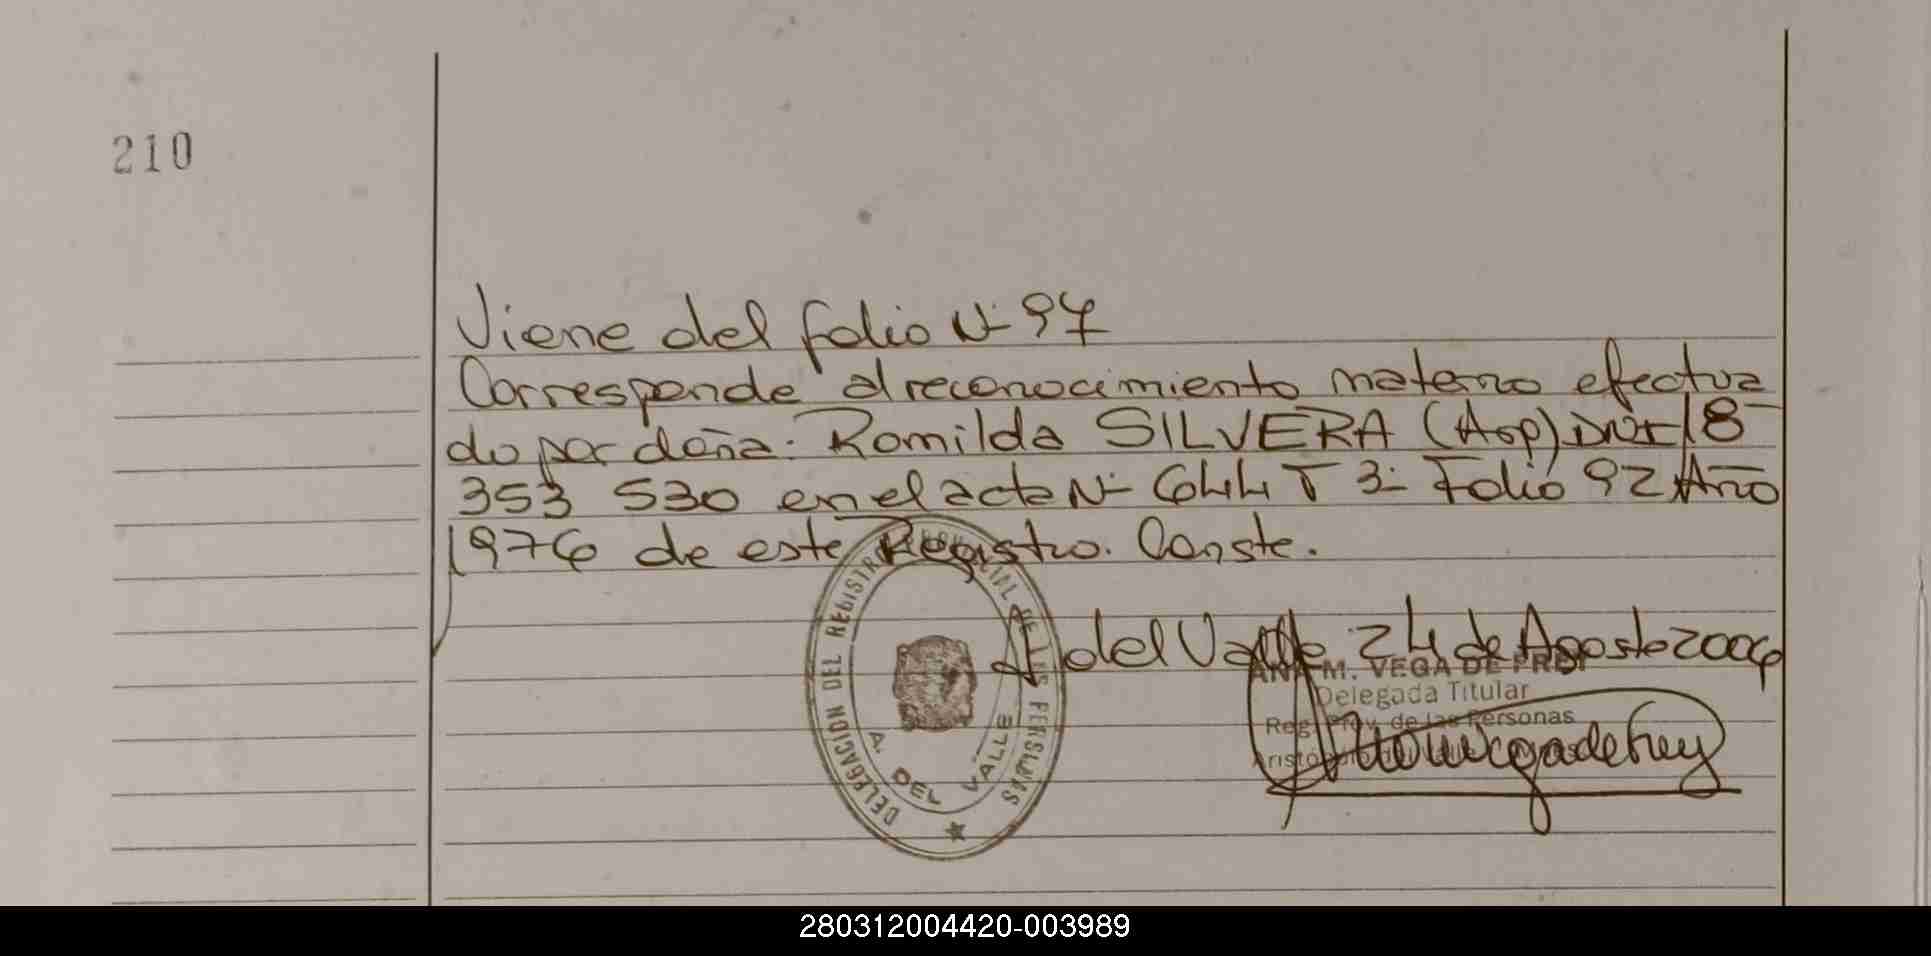 210
Viene del folio N- 97
Corresponde al reconocimiento materno efectua
do por doña: Romilda SILVERA (Arg) DNI 18-
353 530 en el acta N- 644 T 3- Folio 92 Año
1976 de este Registro. Conste.
A del Valle 24 de Agosto 2006
DELEGACION DEL REGISTRO PROVINCIAL DE LAS PERSONAS
A. DEL VALLE
ANA M. VEGA DE FREY
Delegada Titular
Reg. Prov. de las Personas
280312004420-003989